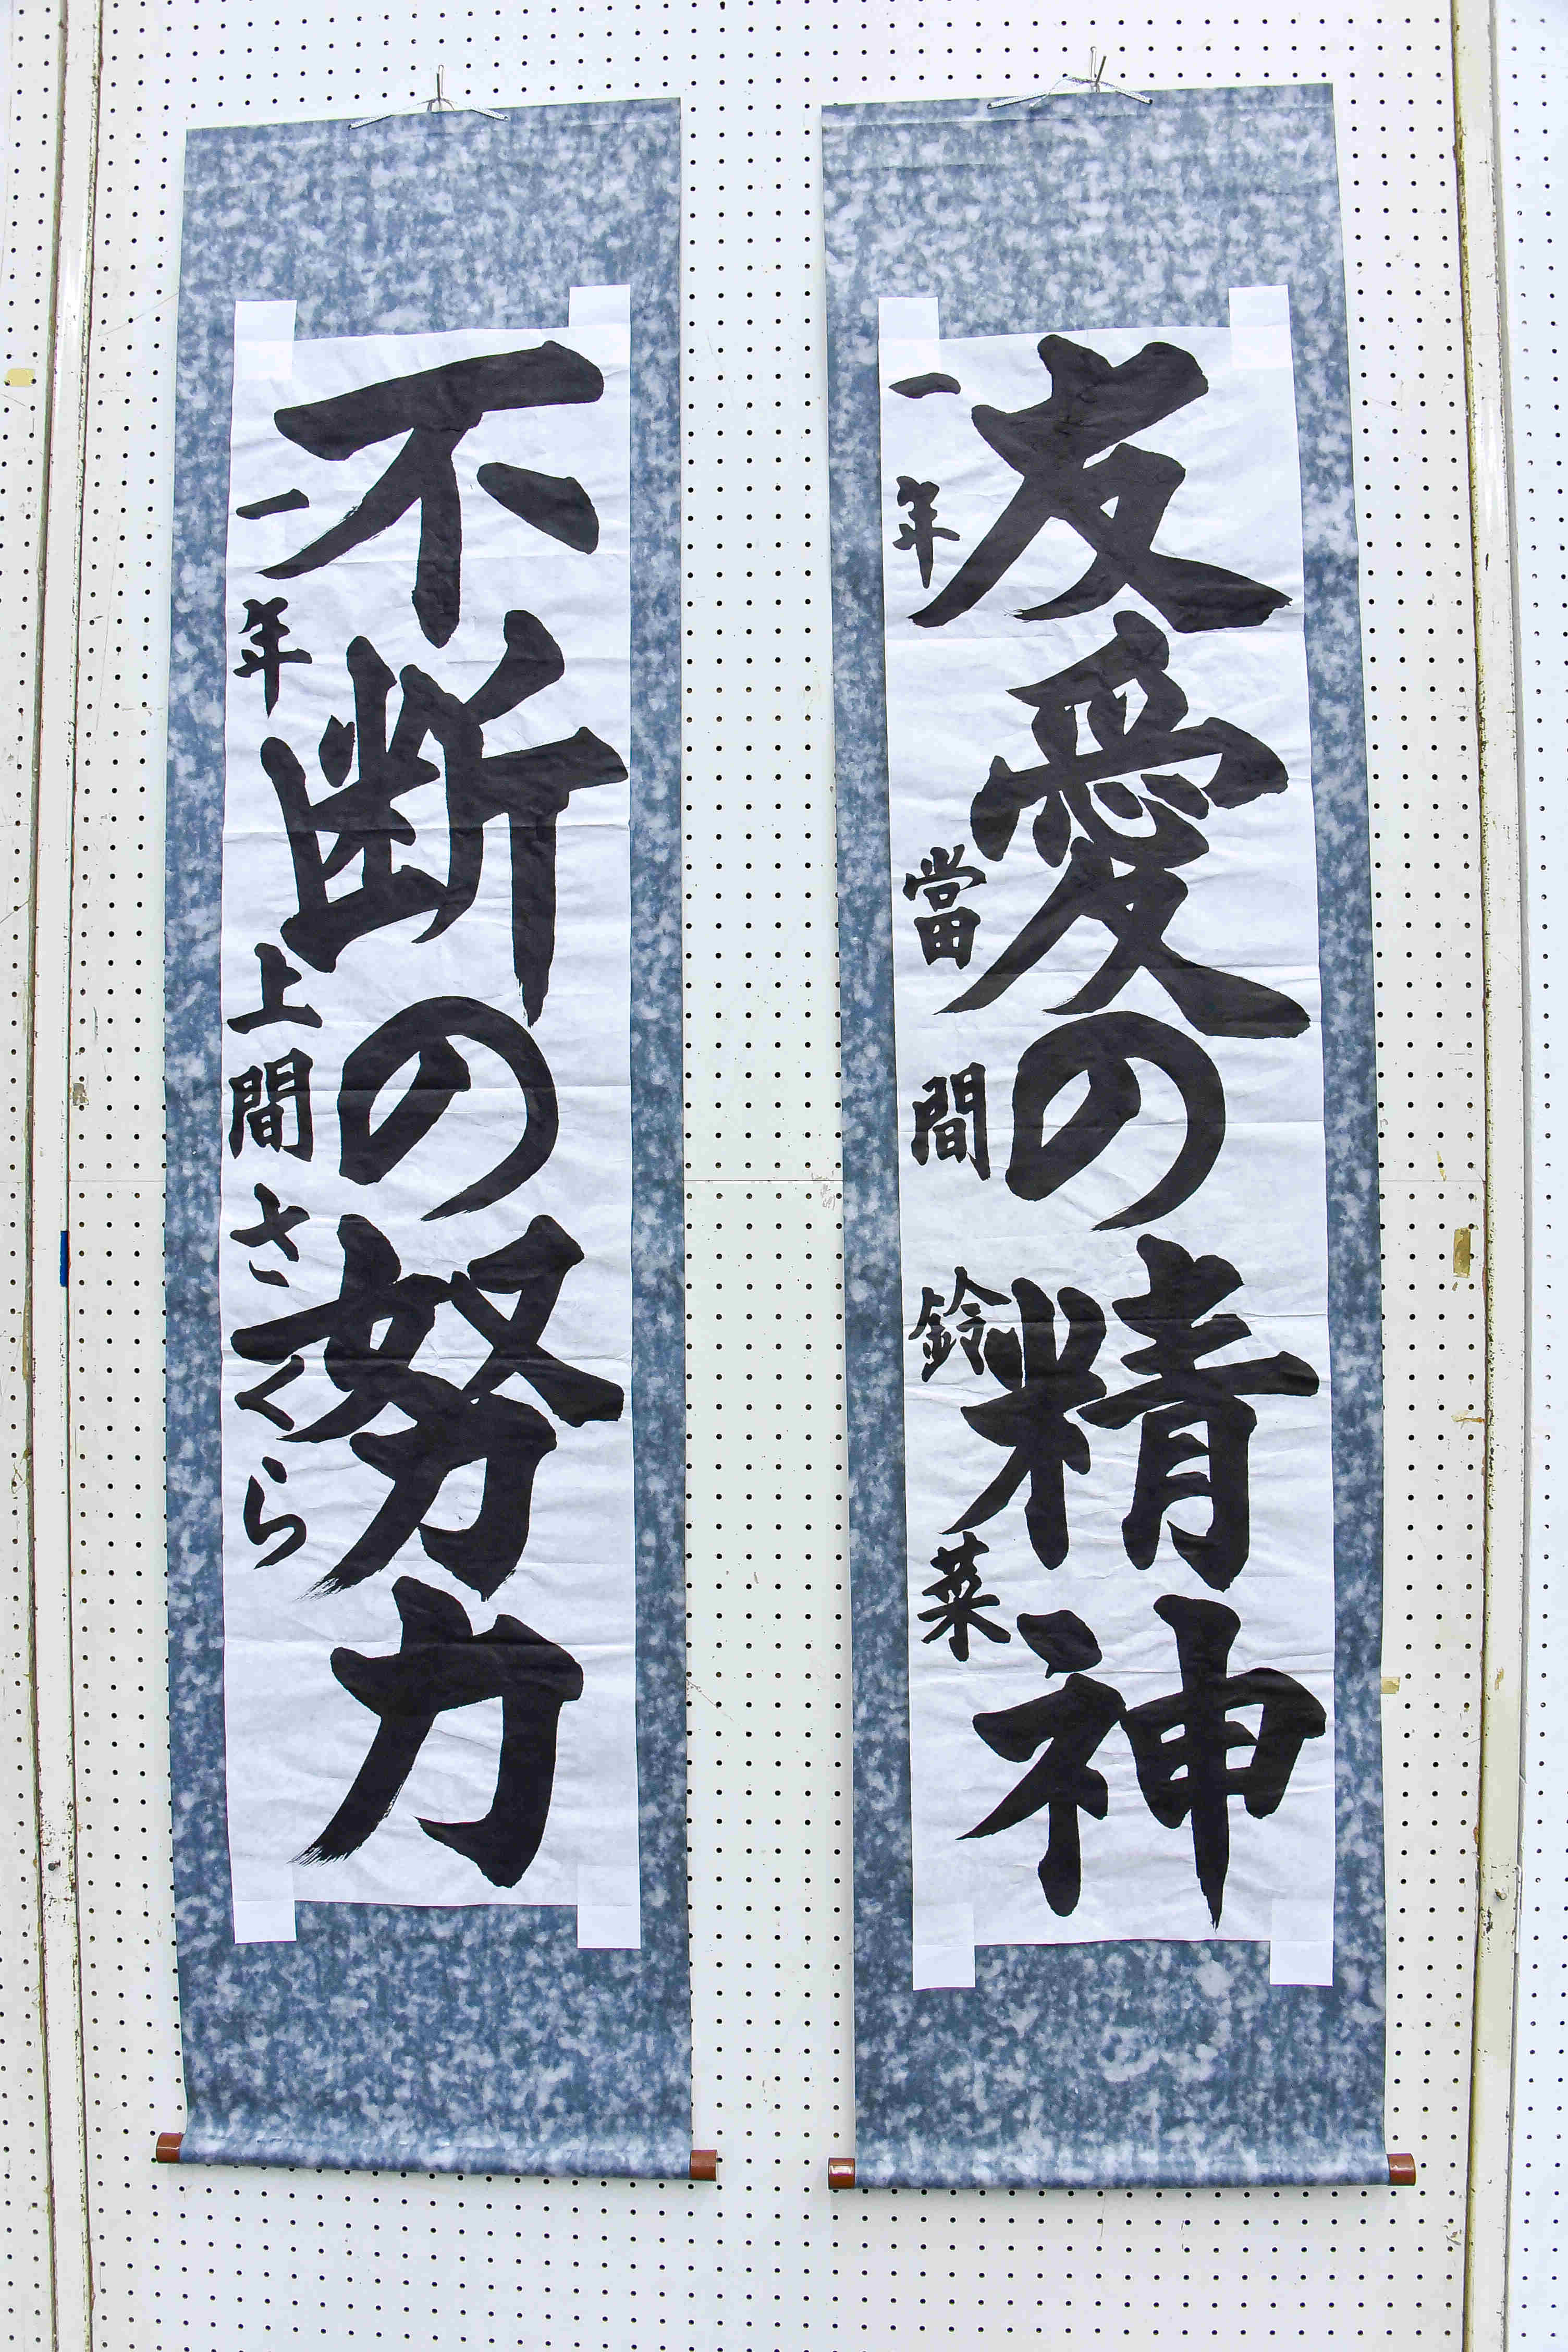 友愛の精神
一年 當間 鈴菜
不断の努力
一年 上間 さくら